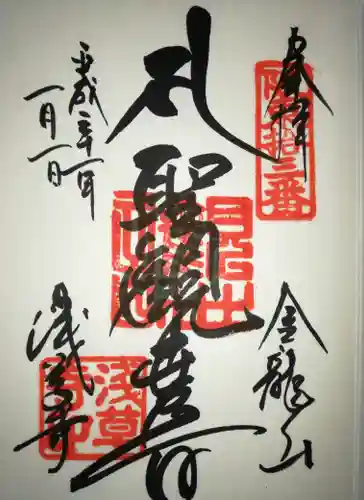 奉拝
坂東拾三番
金龍山
聖観世音
平成二十一年
一月一日
浅草寺
浅草寺印